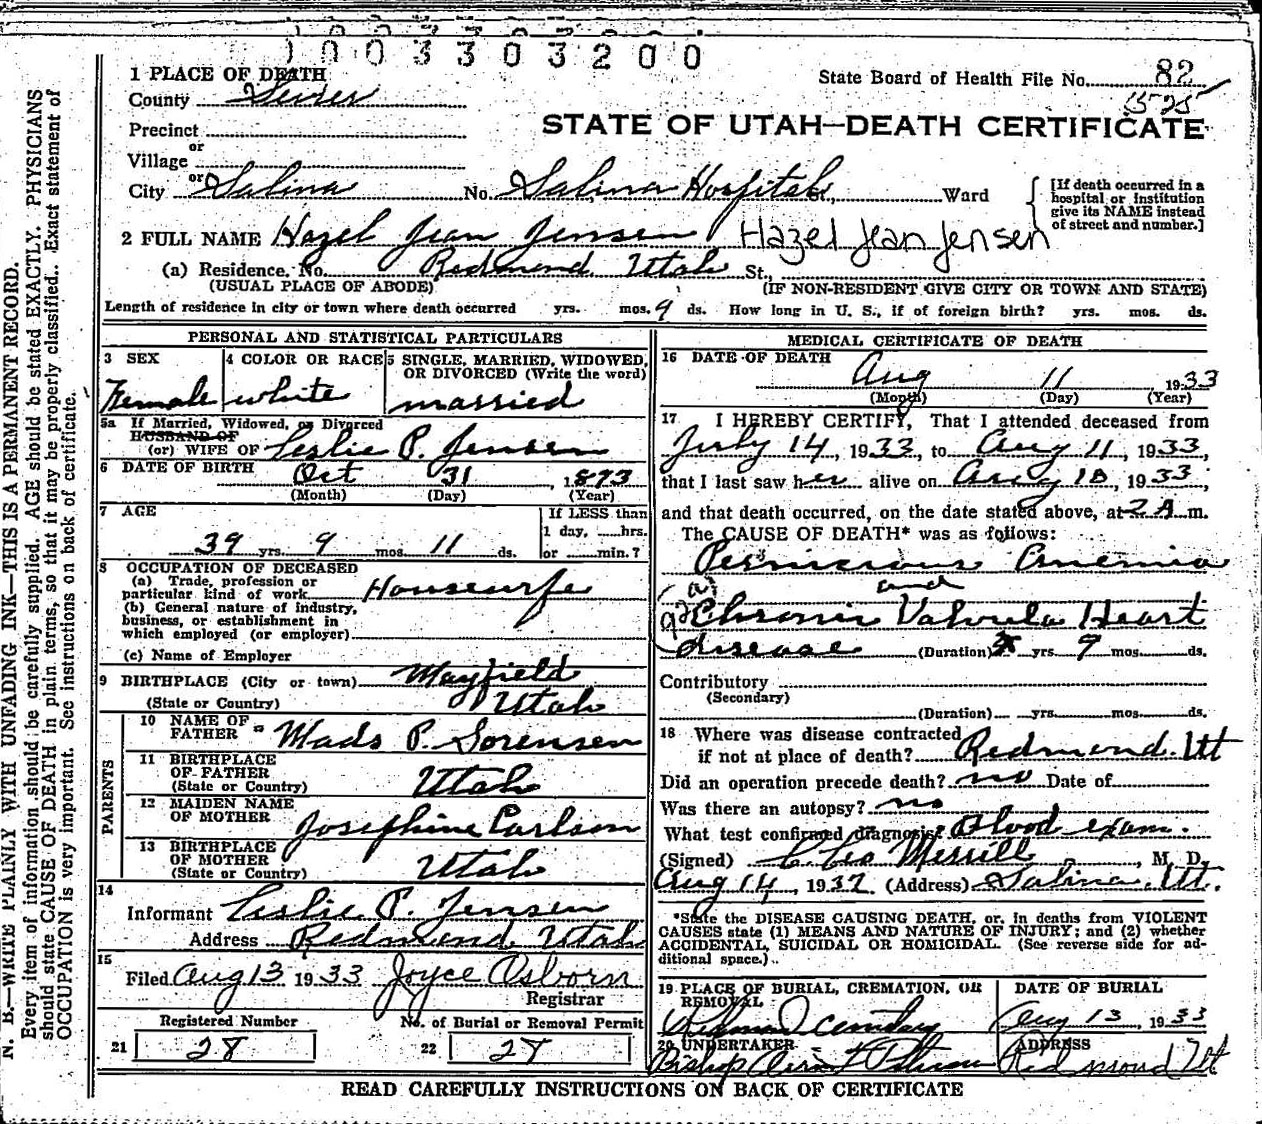 1003303200
1 PLACE OF DEATH
State Board of Health File No. 82
County Sevier
Precinct
STATE OF UTAH—DEATH CERTIFICATE
or
Village
or
City Salina No. Salina Hospital St., Ward
[If death occurred in a hospital or institution give its NAME instead of street and number.]
2 FULL NAME Hazel Jean Jensen Hazel Jean Jensen
(a) Residence. No. Redmond Utah St.,
(USUAL PLACE OF ABODE) (IF NON-RESIDENT GIVE CITY OR TOWN AND STATE)
Length of residence in city or town where death occurred yrs. mos. 9 ds. How long in U. S., if of foreign birth? yrs. mos. ds.
PERSONAL AND STATISTICAL PARTICULARS
3 SEX
Female
4 COLOR OR RACE
white
5 SINGLE, MARRIED, WIDOWED,
OR DIVORCED (Write the word)
married
5a If Married, Widowed, or Divorced
HUSBAND OF
(or) WIFE OF Leslie P. Jensen
6 DATE OF BIRTH Oct 31, 1893
(Month) (Day) (Year)
7 AGE
39 yrs. 9 mos. 11 ds.
If LESS than
1 day, hrs.
or min.?
8 OCCUPATION OF DECEASED
(a) Trade, profession or
particular kind of work Housewife
(b) General nature of industry,
business, or establishment in
which employed (or employer)
(c) Name of Employer
9 BIRTHPLACE (City or town) Mayfield
(State or Country) Utah
PARENTS
10 NAME OF
FATHER Mads P. Sorensen
11 BIRTHPLACE
OF FATHER
(State or Country) Utah
12 MAIDEN NAME
OF MOTHER Josephine Carlson
13 BIRTHPLACE
OF MOTHER
(State or Country) Utah
14
Informant Leslie P. Jensen
Address Redmond Utah
15
Filed Aug 13 1933 Joyce Osborn
Registrar
Registered Number
21 28
No. of Burial or Removal Permit
22 27
MEDICAL CERTIFICATE OF DEATH
16 DATE OF DEATH
Aug 11 1933
(Month) (Day) (Year)
17 I HEREBY CERTIFY, That I attended deceased from
July 14, 1933, to Aug 11, 1933,
that I last saw her alive on Aug 10, 1933,
and that death occurred, on the date stated above, at 2 A m.
The CAUSE OF DEATH* was as follows:
Pernicious Anemia
and
Chronic Valvula Heart
disease (Duration) yrs. 9 mos. ds.
Contributory
(Secondary)
(Duration) yrs. mos. ds.
18 Where was disease contracted
if not at place of death? Redmond. Ut
Did an operation precede death? no Date of
Was there an autopsy? no
What test confirmed diagnosis? Blood exam.
(Signed) C. Leo Merrill, M. D.
Aug 14, 1937 (Address) Salina. Ut.
*State the DISEASE CAUSING DEATH, or, in deaths from VIOLENT
CAUSES state (1) MEANS AND NATURE OF INJURY; and (2) whether
ACCIDENTAL, SUICIDAL OR HOMICIDAL. (See reverse side for ad-
ditional space.)
19 PLACE OF BURIAL, CREMATION, OR
REMOVAL
Redmond Cemetary
DATE OF BURIAL
Aug 13, 1933
20 UNDERTAKER
Bishop
ADDRESS
Redmond Ut
READ CAREFULLY INSTRUCTIONS ON BACK OF CERTIFICATE
N. B.—WRITE PLAINLY WITH UNFADING INK—THIS IS A PERMANENT RECORD.
Every item of information should be carefully supplied. AGE should be stated EXACTLY. PHYSICIANS
should state CAUSE OF DEATH in plain terms, so that it may be properly classified. Exact statement of
OCCUPATION is very important. See instructions on back of certificate.